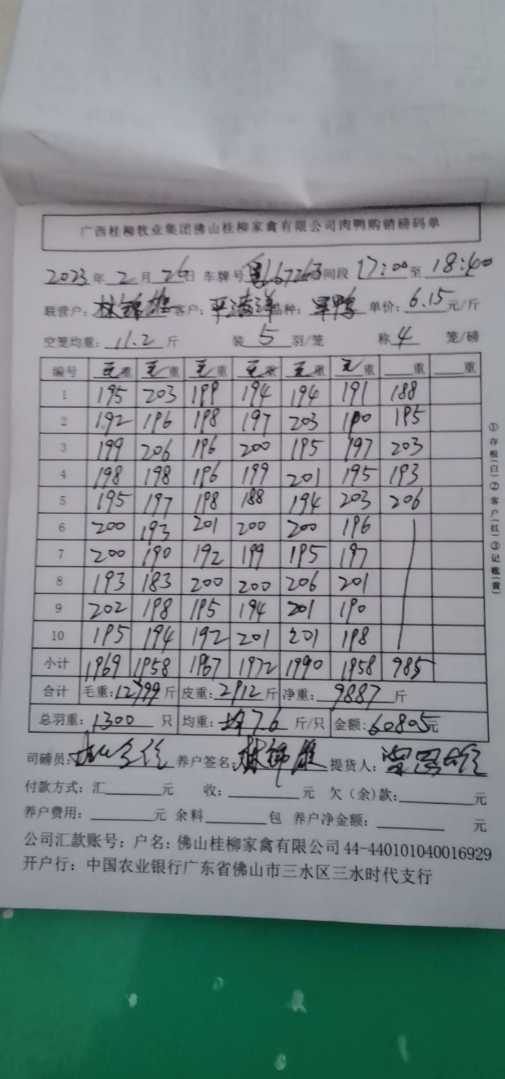 广西桂柳牧业集团佛山桂柳家禽有限公司肉鸭购销磅码单
2023年 2月 26日 车牌号 67263 间段 17:00 至 18:40
联营户: 林锦雄 客户: 品种: 单价: 6.15 元/斤
空笼均重: 11.2 斤 装 5 羽/笼 称 4 笼/磅
编号 毛重 毛重 毛重 毛重 毛重 毛重 重 重
1 195 203 199 194 194 191 188
2 192 196 198 197 203 190 195
3 199 206 196 200 195 197 203
4 198 198 196 199 201 195 193
5 195 197 198 188 194 203 206
6 200 193 201 200 200 196
7 200 190 192 199 195 197
8 193 183 200 200 206 201
9 202 198 195 194 201 190
10 195 194 192 201 201 198
小计 1969 1958 1967 1972 1990 1958 985
合计 毛重: 12799 斤 皮重: 2912 斤 净重: 9887 斤
总羽重: 1300 只 均重: 7.6 斤/只 金额: 60805元
司磅员: 养户签名: 林锦雄 提货人:
付款方式: 汇 元 收: 元 欠(余)款: 元
养户费用: 元 余料 包 养户净金额: 元
公司汇款账号: 户名: 佛山桂柳家禽有限公司 44-440101040016929
开户行: 中国农业银行广东省佛山市三水区三水时代支行
①存根(白)②客户(红)③记账(黄)